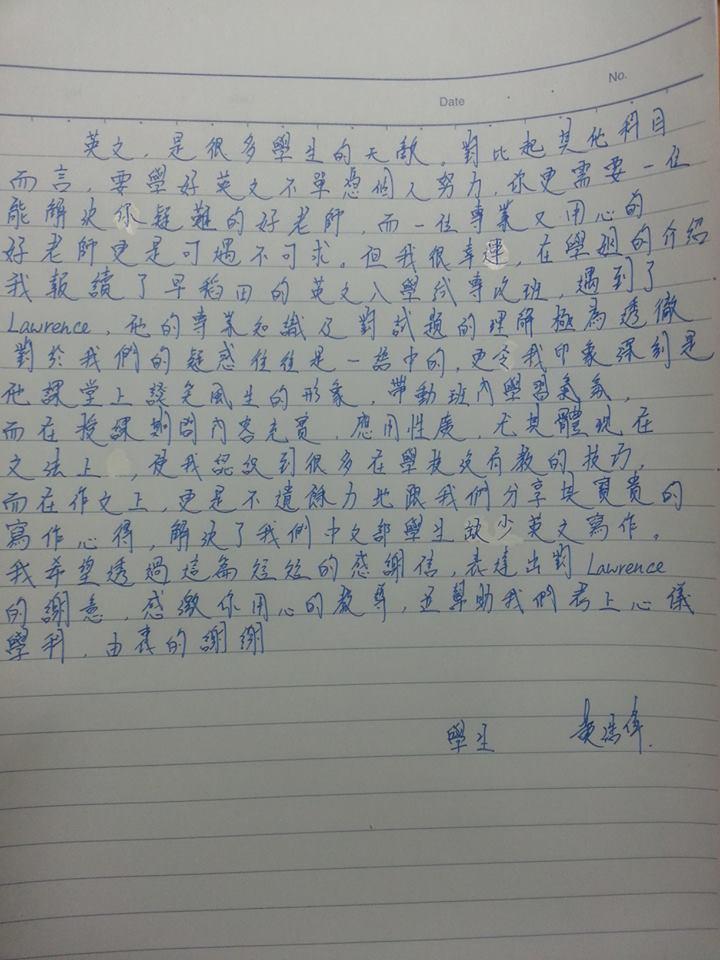 No.
Date
英文，是很多學生的天敵。對比起其他科目
而言，要學好英文不單憑個人努力，你更需要一位
能解決你疑難的好老師，而一位專業又用心的
好老師更是可遇不可求。但我很幸運，在學姐的介紹
我報讀了早稻田的英文入學試專攻班，遇到了
Lawrence，他的專業知識及對試題的理解極為透徹
對於我們的疑惑往往是一語中的，更令我印象深刻是
他課堂上談笑風生的形象，帶動班內學習氣氛，
而在授課期間內容充實，應用性廣，尤其體現在
文法上，使我認識到很多在學校沒有教的技巧，
而在作文上，更是不遺餘力地跟我們分享其寶貴的
寫作心得，解決了我們中文部學生缺少英文寫作。
我希望透過這篇短短的感謝信，表達出對Lawrence
的謝意，感激你用心的教導，还幫助我們考上心儀
學科，由衷的謝謝
學生